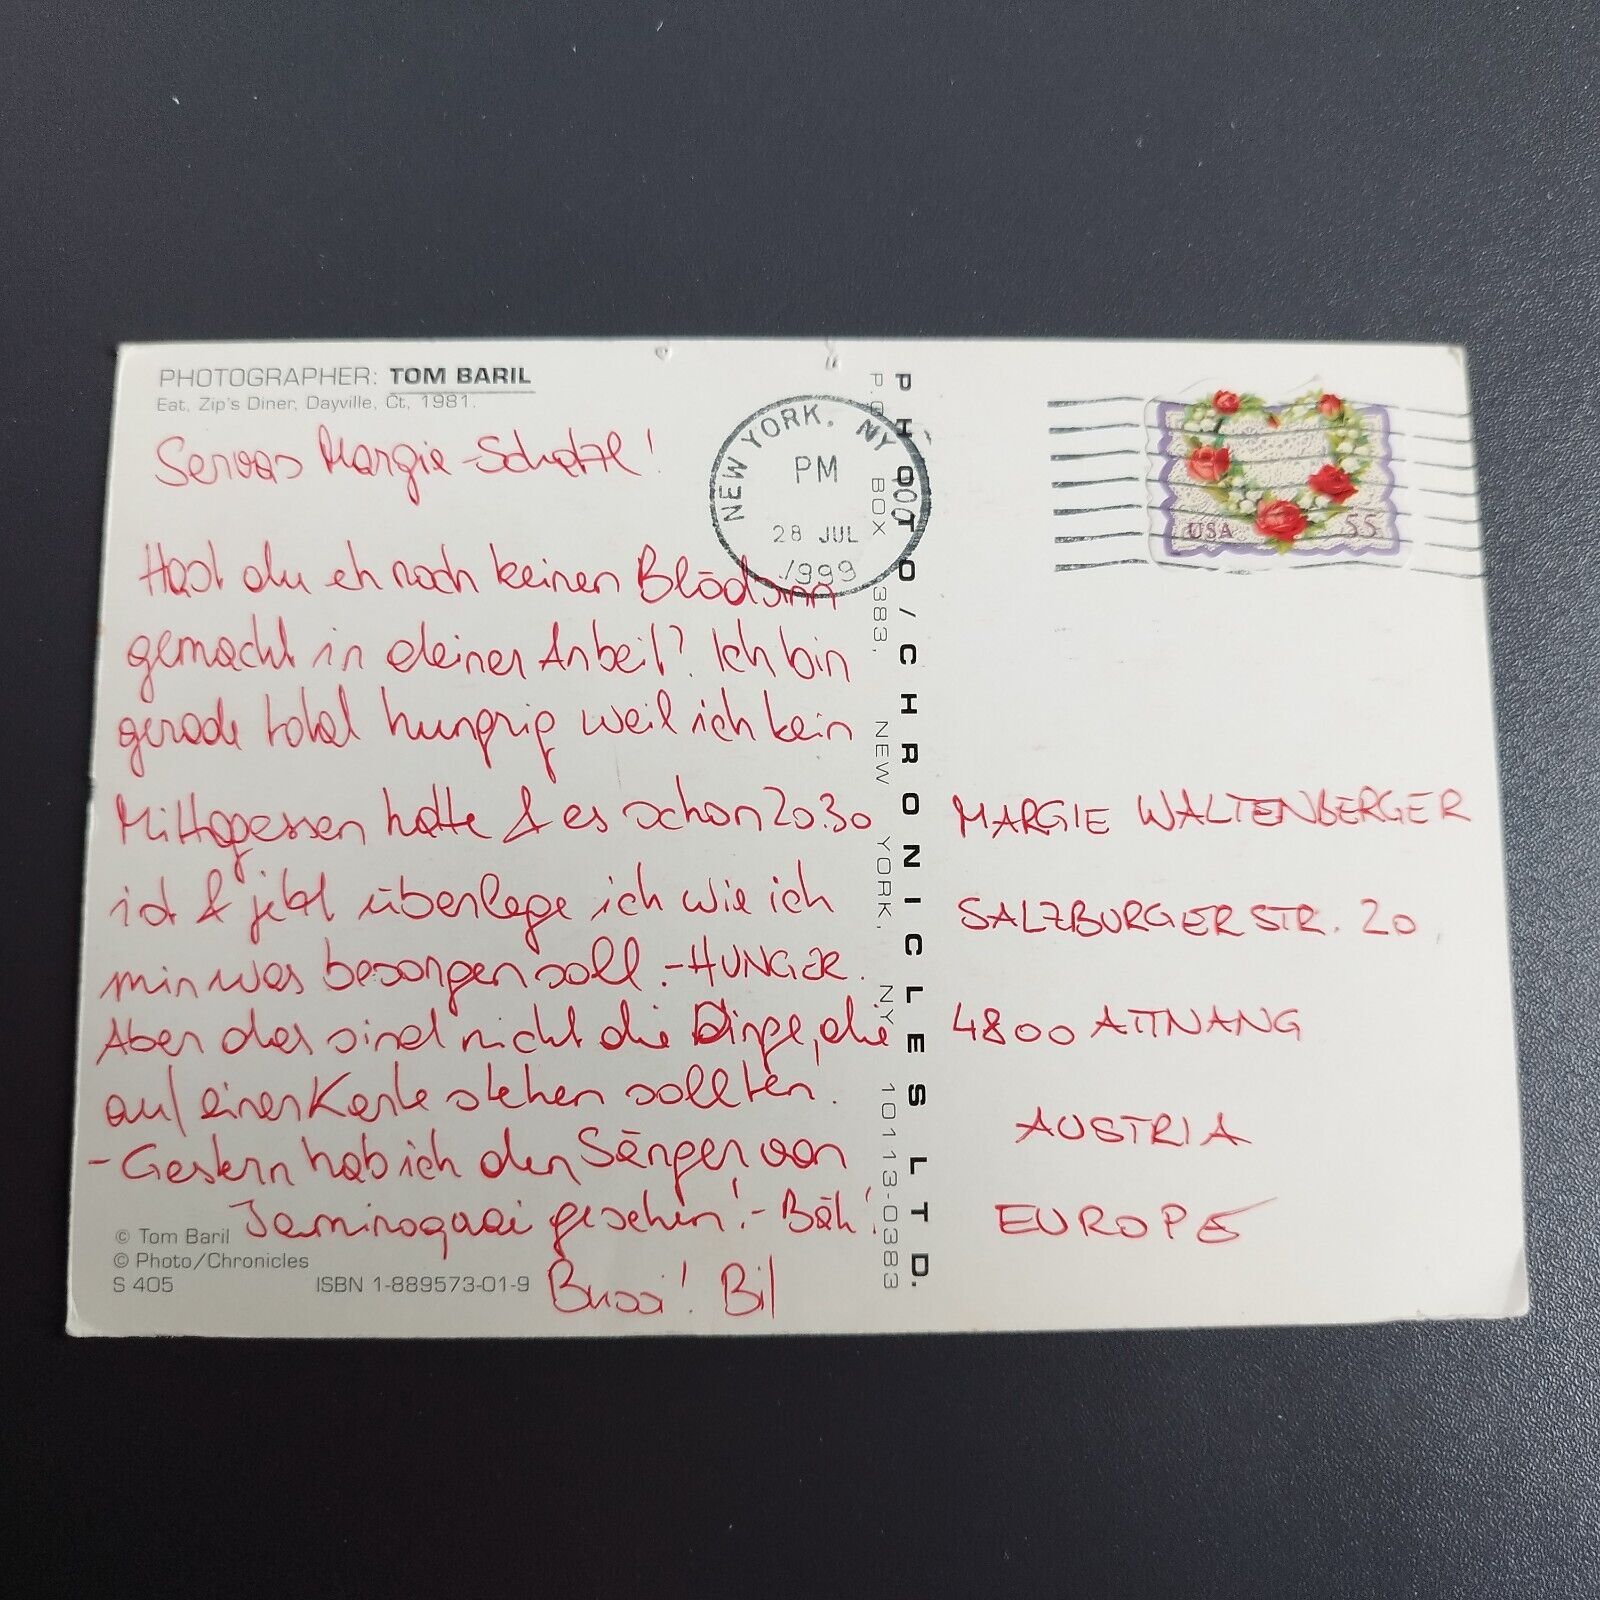 PHOTOGRAPHER: TOM BARIL
Eat, Zip's Diner, Dayville, Ct, 1981.
Servas Margie-Schatzl!
Hast du eh noch keinen Blödsinn
gemacht in deiner Arbeit? Ich bin
gerade total hungrig weil ich kein
Mittagessen hatte & es schon 20.30
ist & jetzt überlege ich wie ich
mir was besorgen soll. - HUNGER.
Aber das sind nicht die Dinge, die
auf einer Karte stehen sollten!
- Gestern hab ich den Sänger von
Jamiroquai gesehen! - Bäh!
Bussi! Bil
© Tom Baril
© Photo/Chronicles
S 405 ISBN 1-889573-01-9
NEW YORK, NY
PM
28 JUL
1999
PHOTO/CHRONICLES LTD.
P.O. BOX 383, NEW YORK, NY 10113-0383
USA 55
MARGIE WALTENBERGER
SALZBURGER STR. 20
4800 ATTNANG
AUSTRIA
EUROPE